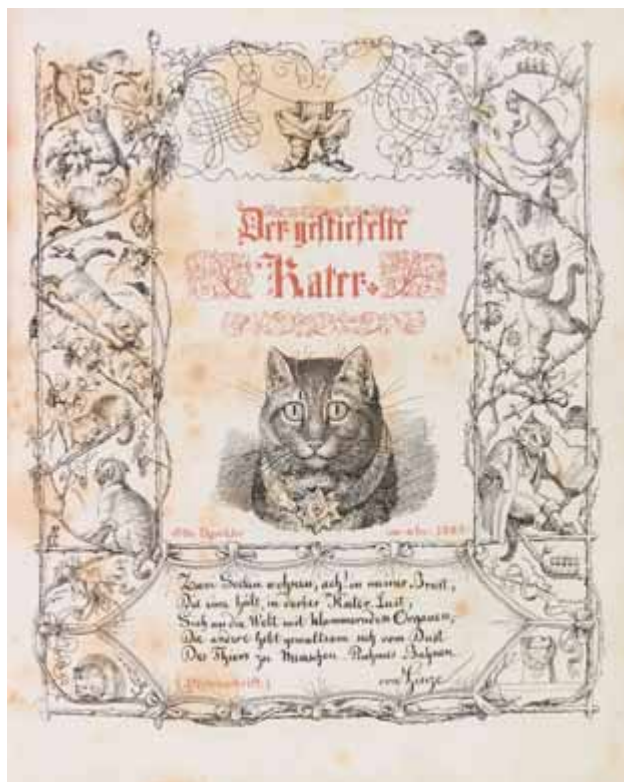 Der gestiefelte
Kater.
Otto Speckter
Zwei Seelen wohnen, ach! in meiner Brust,
Die eine hält, in derber Kater Lust,
Sich an die Welt mit klammernden Organen,
Die andere hebt gewaltsam sich vom Dust
Des Thiers zu Menschen Ruhmes Bahnen.
(Pfotenschrift.) von Hinze.